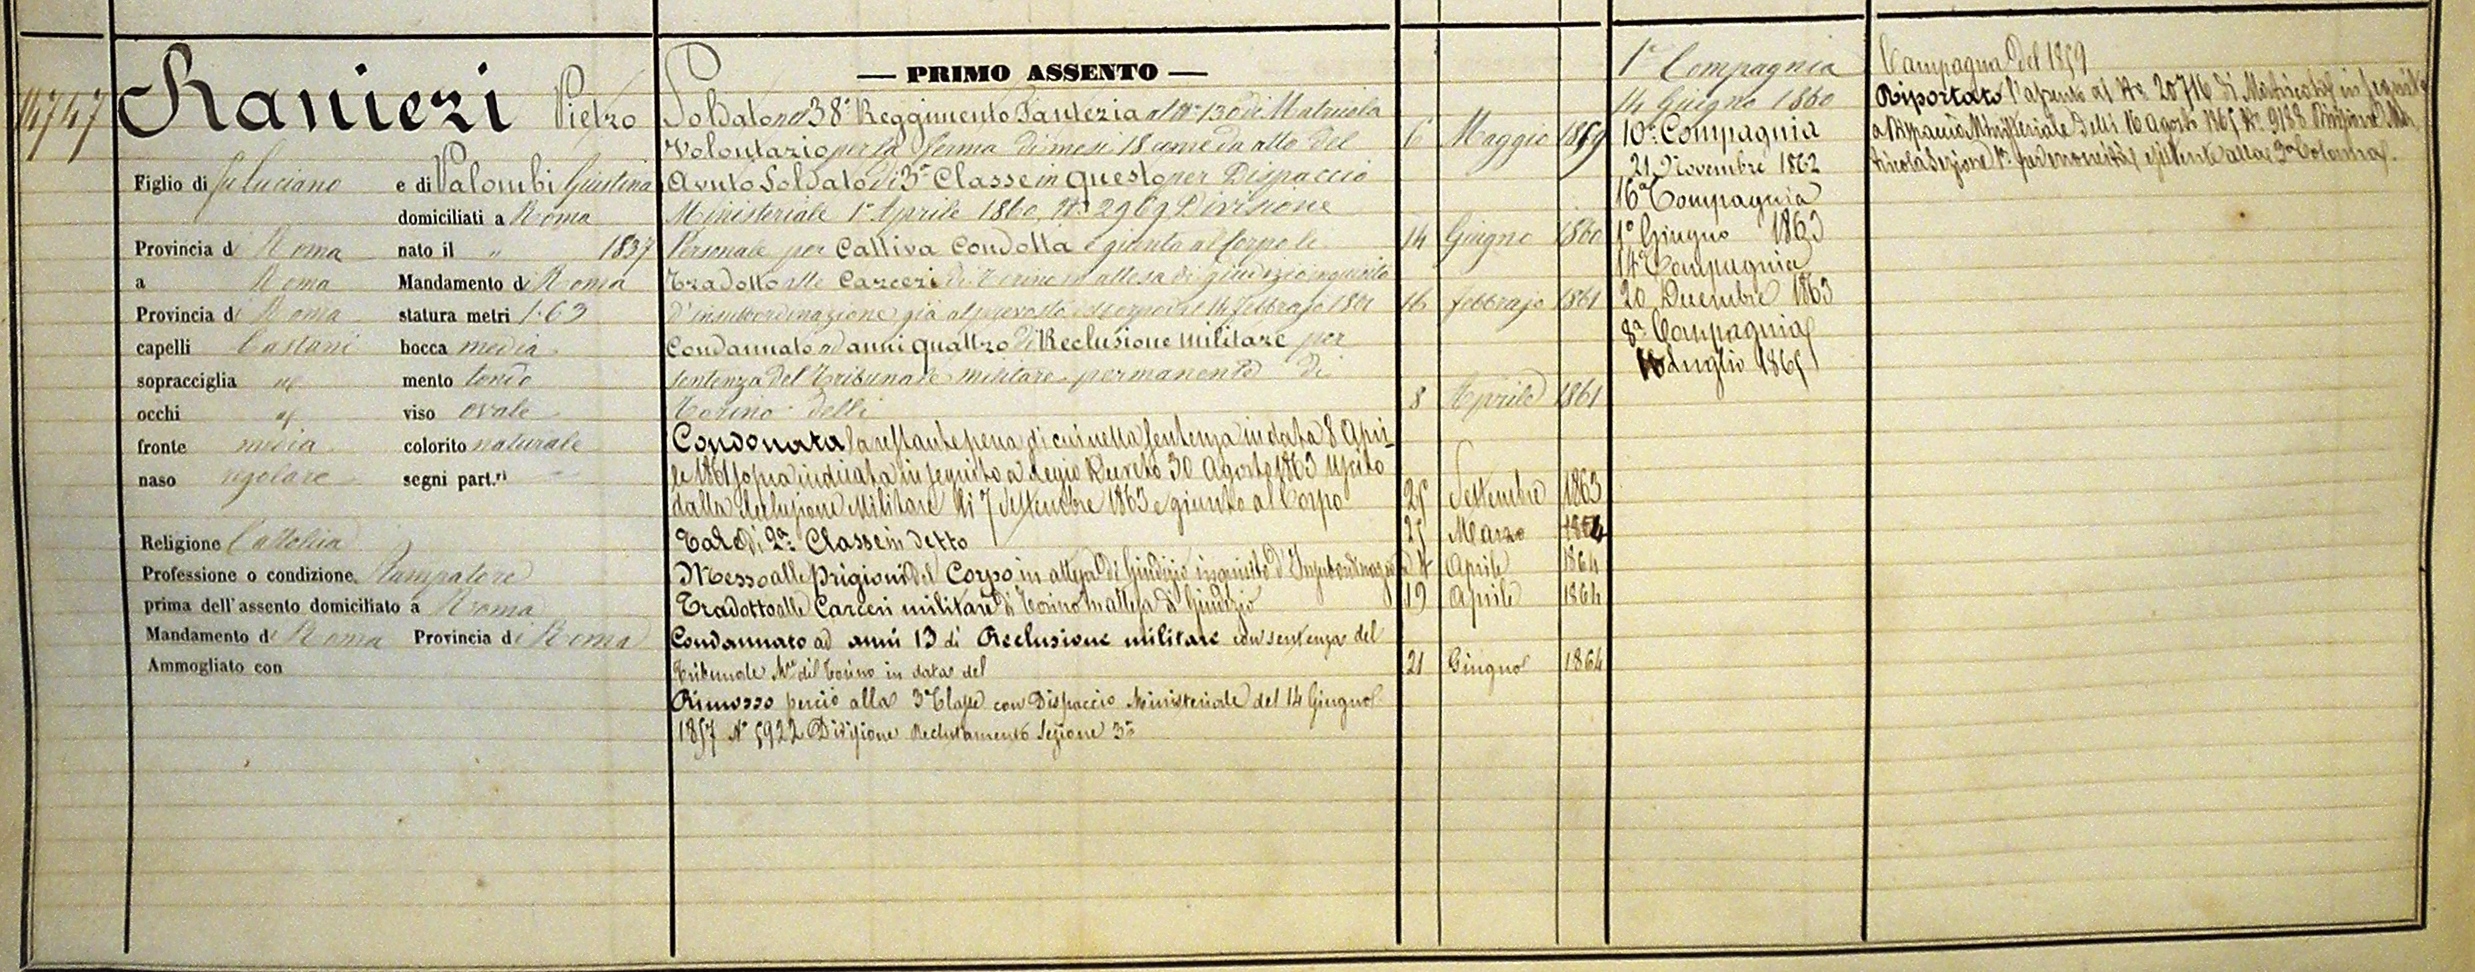 14747
Ranieri Pietro
Figlio di fu Luciano e di Palombi Giustina
domiciliati a Roma
Provincia di Roma nato il " 1837
a Roma Mandamento di Roma
Provincia di Roma statura metri 1.63
capelli Castani bocca media
sopracciglia id mento tondo
occhi id viso ovale
fronte media colorito naturale
naso regolare segni part.ri "
Religione Cattolica
Professione o condizione Stampatore
prima dell'assento domiciliato a Roma
Mandamento di Roma Provincia di Roma
Ammogliato con
— PRIMO ASSENTO —
Soldato nel 38° Reggimento Fanteria al N° 130 di Matricola
Volontario per la ferma di mesi 18 come da atto del 6 Maggio 1859
Avuto Soldato di 3a Classe in questo per Dispaccio
Ministeriale 1° Aprile 1860, N° 2969 Divisione
Personale per Cattiva Condotta e giunto al Corpo le 14 Giugno 1860
Tradotto alle Carceri di Torino in attesa di giudizio inquisito
d'insubordinazione già al prevosto del corpo dal 14 Febbrajo 1861 16 febbrajo 1861
Condannato ad anni quattro di Reclusione militare per
sentenza del Tribunale militare permanente di
Torino delli 8 Aprile 1861
Condonata la restante pena di cui nella sentenza in data 8 Apri-
le 1861 sopra indicata in seguito a Regio Decreto 30 Agosto 1863 uscito
dalla Reclusione Militare li 7 Settembre 1863 e giunto al Corpo 25 Settembre 1863
Tale di 2a Classe in detto 25 Marzo 1864
Messo alle prigioni del Corpo in attesa di Giudizio inquisito d'Insubordinazione 4 Aprile 1864
Tradotto alle Carceri militari di Torino in attesa di Giudizio 19 Aprile 1864
Condannato ad anni 13 di Reclusione militare con sentenza del
Tribunale Mre di Torino in data del 21 Giugno 1864
Rimosso perciò alla 3a Classe con Dispaccio Ministeriale del 14 Giugno
1857 N° 5922 Divisione Reclutamento Sezione 3a
1a Compagnia
14 Giugno 1860
10a Compagnia
21 Novembre 1862
16a Compagnia
1° Giugno 1863
14a Compagnia
20 Dicembre 1863
8a Compagnia
Luglio 1865
Campagna del 1859
Riportato l'assento al N° 20716 di Matricola in seguito
a Dispaccio Ministeriale delli 16 Agosto 1865 N° 9188 Divisione Ma-
tricola Sezione 1a